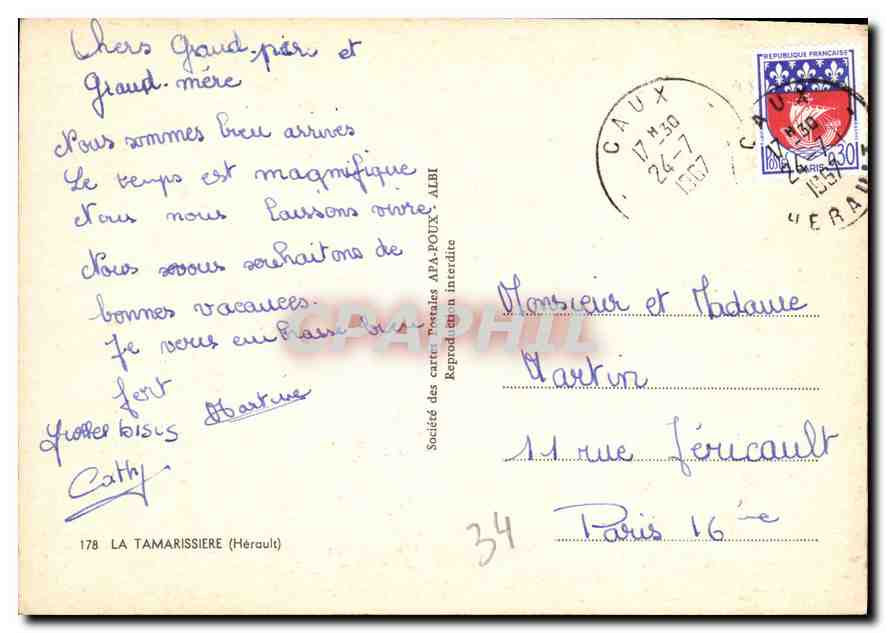 Chers Grand-pèr et
Grand-mère
Nous sommes bien arrivés
Le temps est magnifique
Nous nous laissons vivre.
Nous vous souhaitons de
bonnes vacances.
Je vous embrasse bien
fort
Martine
Grosses bisis
Cathy
178 LA TAMARISSIERE (Hérault)
Société des cartes Postales APA-POUX - ALBI
Reproduction interdite
CPARAMA
CAUX
17 H 30
24-7
1967
REPUBLIQUE FRANÇAISE
POSTES
0,30
PARIS
CAUX
17 H 30
24-7
1967
HERAULT
Monsieur et Madame
Martin
11 rue Géricault
Paris 16ème
34